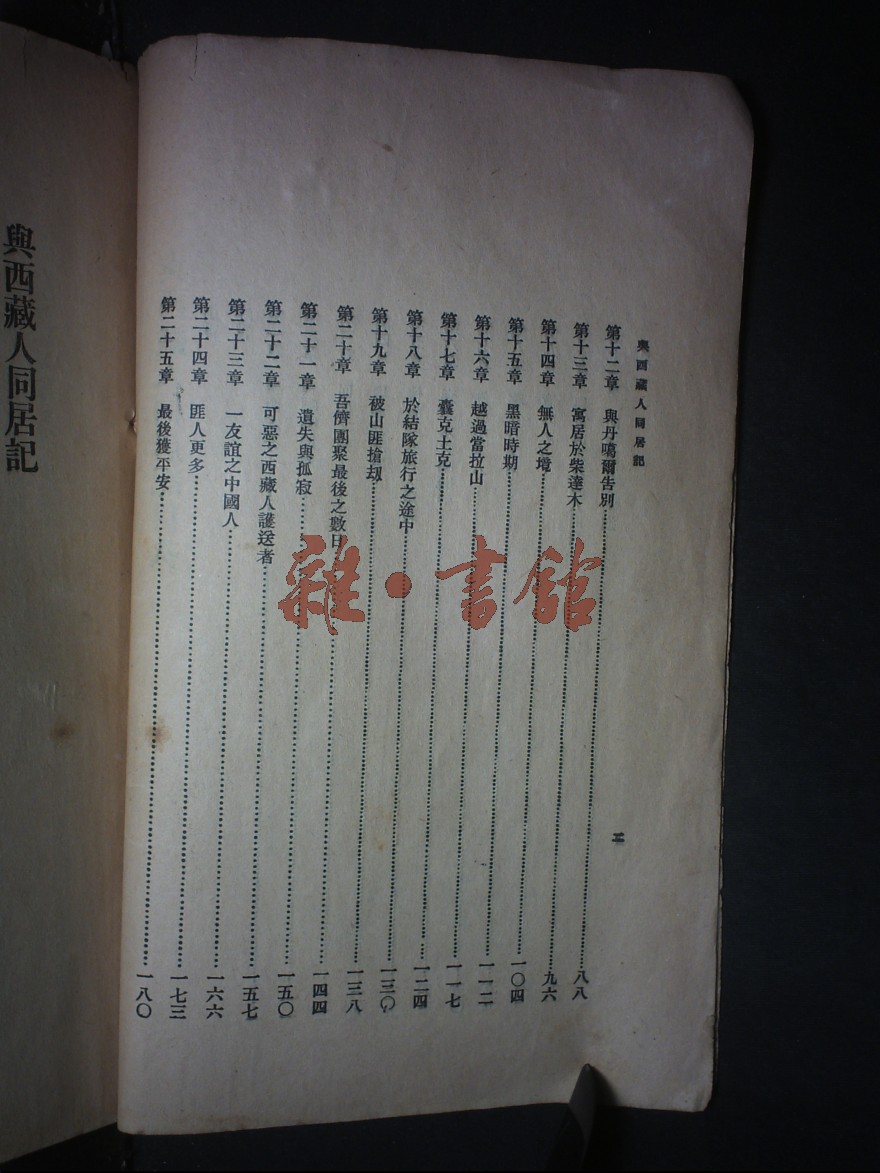 與西藏人同居記
第十二章 與丹噶爾告別……八八
第十三章 寓居於柴達木……九六
第十四章 無人之境……一〇四
第十五章 黑暗時期……一一二
第十六章 越過當拉山……一一七
第十七章 囊克土克……一二四
第十八章 於結隊旅行之途中……一三〇
第十九章 被山匪搶刼……一三八
第二十章 吾儕團聚最後之數日……一四四
第二十一章 遺失與孤寂……一五〇
第二十二章 可惡之西藏人護送者……一五七
第二十三章 一友誼之中國人……一六六
第二十四章 匪人更多……一七三
第二十五章 最後獲平安……一八〇
與西藏人同居記
雜·書館